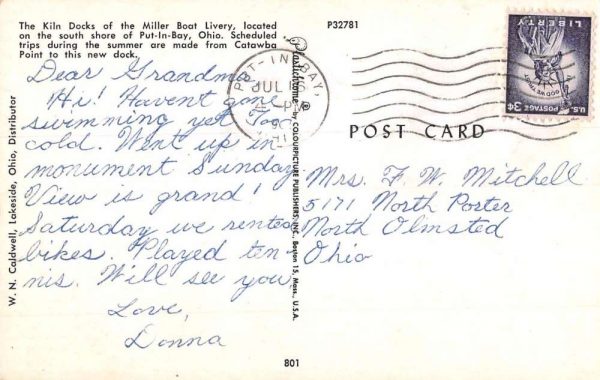 The Kiln Docks of the Miller Boat Livery, located
on the south shore of Put-In-Bay, Ohio. Scheduled
trips during the summer are made from Catawba
Point to this new dock.
Dear Grandma,
Hi! Havent gone
swimming yet. Too
cold. Went up in
monument Sunday
View is grand!
Saturday we rented
bikes. Played ten-
nis. Will see you,
Love,
Donna
W. N. Caldwell, Lakeside, Ohio, Distributor
P32781
Plastichrome ® by COLOURPICTURE PUBLISHERS, INC., Boston 15, Mass., U.S.A.
PUT-IN-BAY,
JUL
P
POST CARD
LIBERTY
IN GOD WE TRUST
U.S. POSTAGE 3¢
Mrs. F. W. Mitchell
5171 North Porter
North Olmsted
Ohio
801